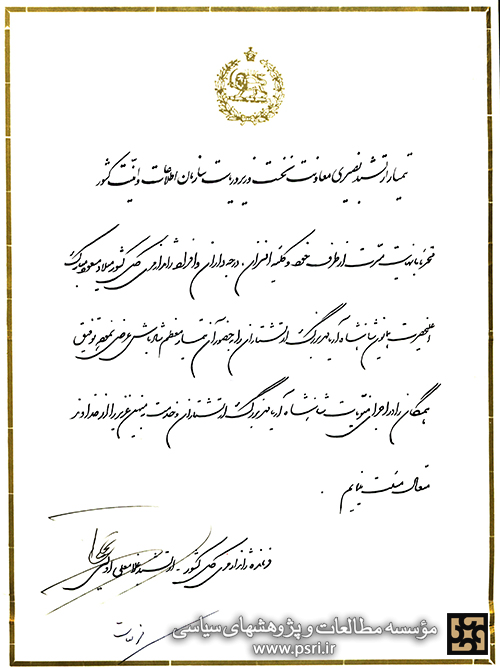 تیمسار ارتشبد نصیری معاونت نخست وزیر و ریاست سازمان اطلاعات و امنیت کشور
محترماً با نهایت مسرت از طرف خود و کلیه افسران، درجه داران و افراد ژاندارمری کل کشور میلاد مسعود مبارک
اعلیحضرت همایون شاهنشاه آریامهر بزرگ ارتشتاران را به حضور آن تیمسار معظم شادباش عرض نموده توفیق
همگان را در اجرای منویات شاهنشاه آریامهر بزرگ ارتشتاران و خدمت به میهن عزیز را از خداوند
متعال مسئلت مینمایم .
فرمانده ژاندارمری کل کشور - ارتشبد غلامعلی اویسی
مؤسسه مطالعات و پژوهشهای سیاسی
www.psri.ir